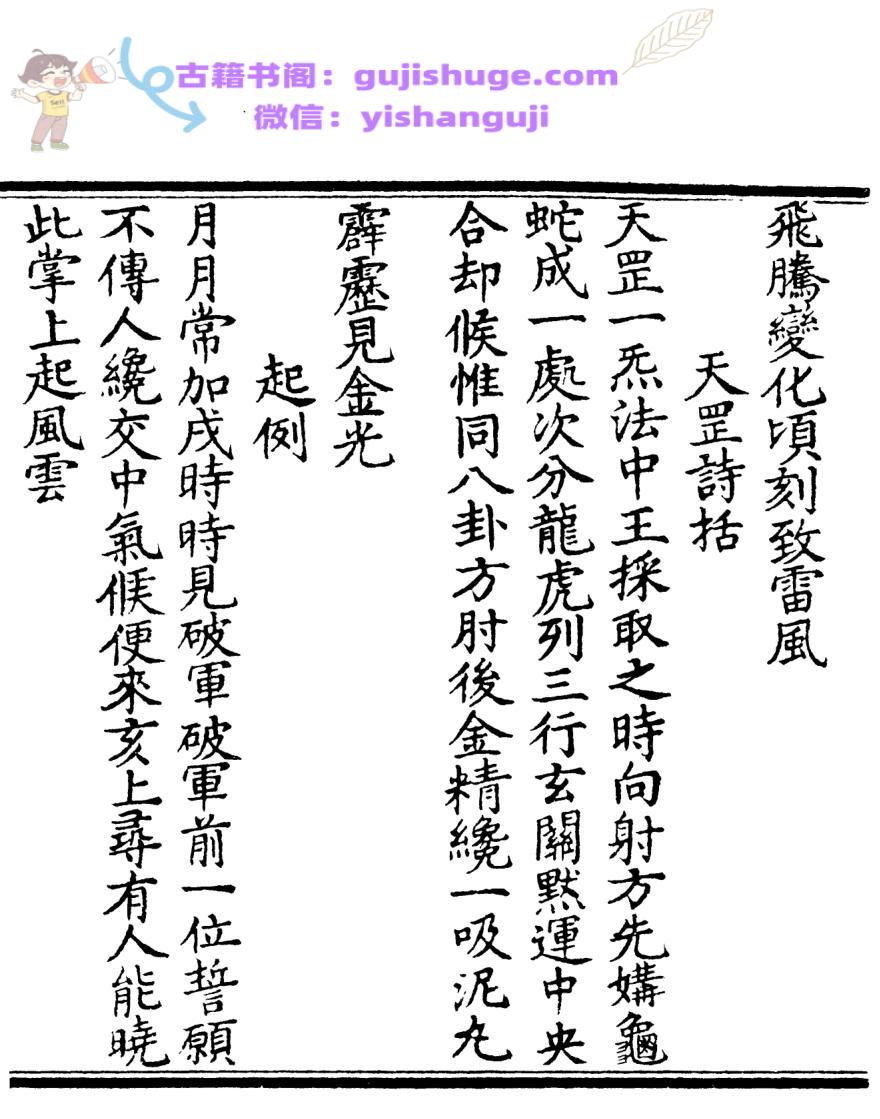 古籍书阁：gujishuge.com
微信：yishanguji
Sell
飛騰變化頃刻致雷風
天罡詩括
天罡一炁法中王採取之時向射方先媾龜
蛇成一處次分龍虎列三行玄關默運中央
合却候惟同八卦方肘後金精纔一吸泥丸
霹靂見金光
起例
月月常加戌時時見破軍破軍前一位誓願
不傳人纔交中氣候便來亥上尋有人能曉
此掌上起風雲